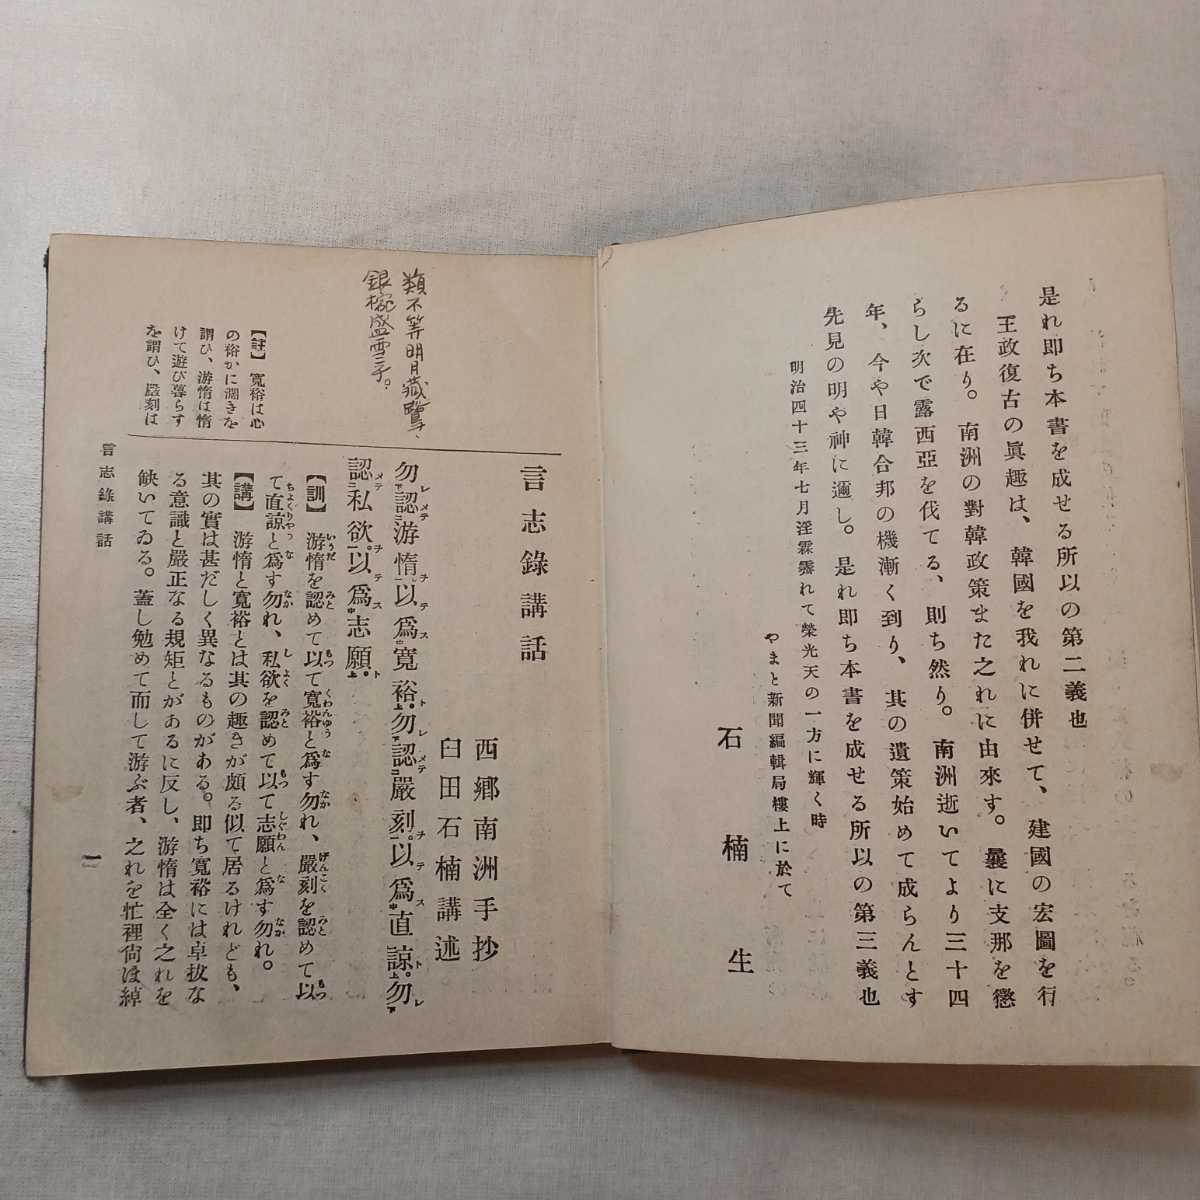 是れ即ち本書を成せる所以の第二義也
王政復古の眞趣は、韓國を我れに併せて、建國の宏圖を行
るに在り。南洲の對韓政策また之れに由來す。曩に支那を懲
らし次で露西亞を伐てる、則ち然り。南洲逝いてより三十四
年、今や日韓合邦の機漸く到り、其の遺策始めて成らんとす
先見の明や神に邇し。是れ即ち本書を成せる所以の第三義也
明治四十三年七月淫霖霽れて榮光天の一方に輝く時
やまと新聞編輯局樓上に於て
石楠生
言志錄講話
西鄕南洲手抄
臼田石楠講述
勿レ認メテ游惰ヲ以テ爲ス寬裕ト。勿レ認メテ嚴刻ヲ。以テ爲ス直諒ト。勿レ
認メテ私欲ヲ。以テ爲ス志願ト。
【訓】游惰を認めて以て寬裕と爲す勿れ、嚴刻を認めて以
て直諒と爲す勿れ、私欲を認めて以て志願と爲す勿れ。
【講】游惰と寬裕とは其の趣きが頗る似て居るけれども、
其の實は甚だしく異なるものがある。即ち寬裕には卓拔な
る意識と嚴正なる規矩とがあるに反し、游惰は全く之れを
缺いてゐる。蓋し勉めて而して游ぶ者、之れを忙裡尙ほ綽
類不等明月藏鷺、
銀椀盛雪
【註】寬裕は心
の裕かに濶きを
謂ひ、游惰は惰
けて遊び暮らす
を謂ひ、嚴刻は
言志錄講話
一